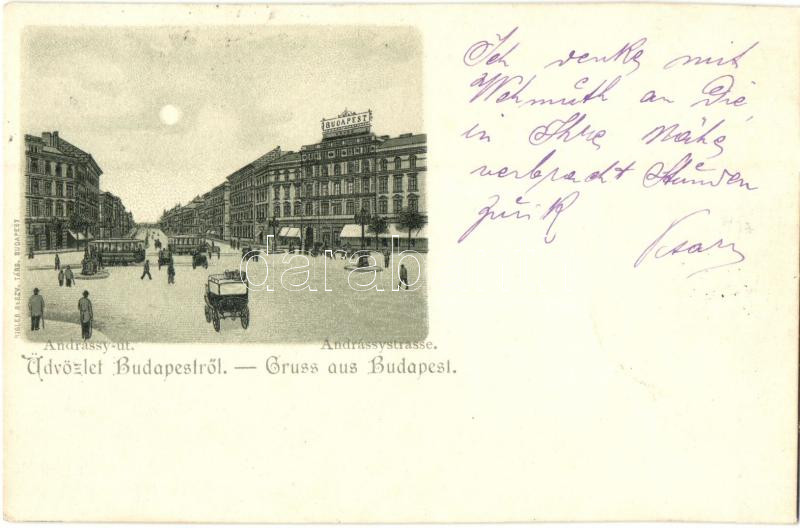 BUDAPEST
darab
RIGLER RÉSZV. TÁRS. BUDAPEST
Andrássy-út. Andrássystrasse.
Üdvözlet Budapestről. — Gruss aus Budapest.
Ich denke mit
Wehmuth an Die,
in Ihre Nähe
verbracht Stunden
zürik